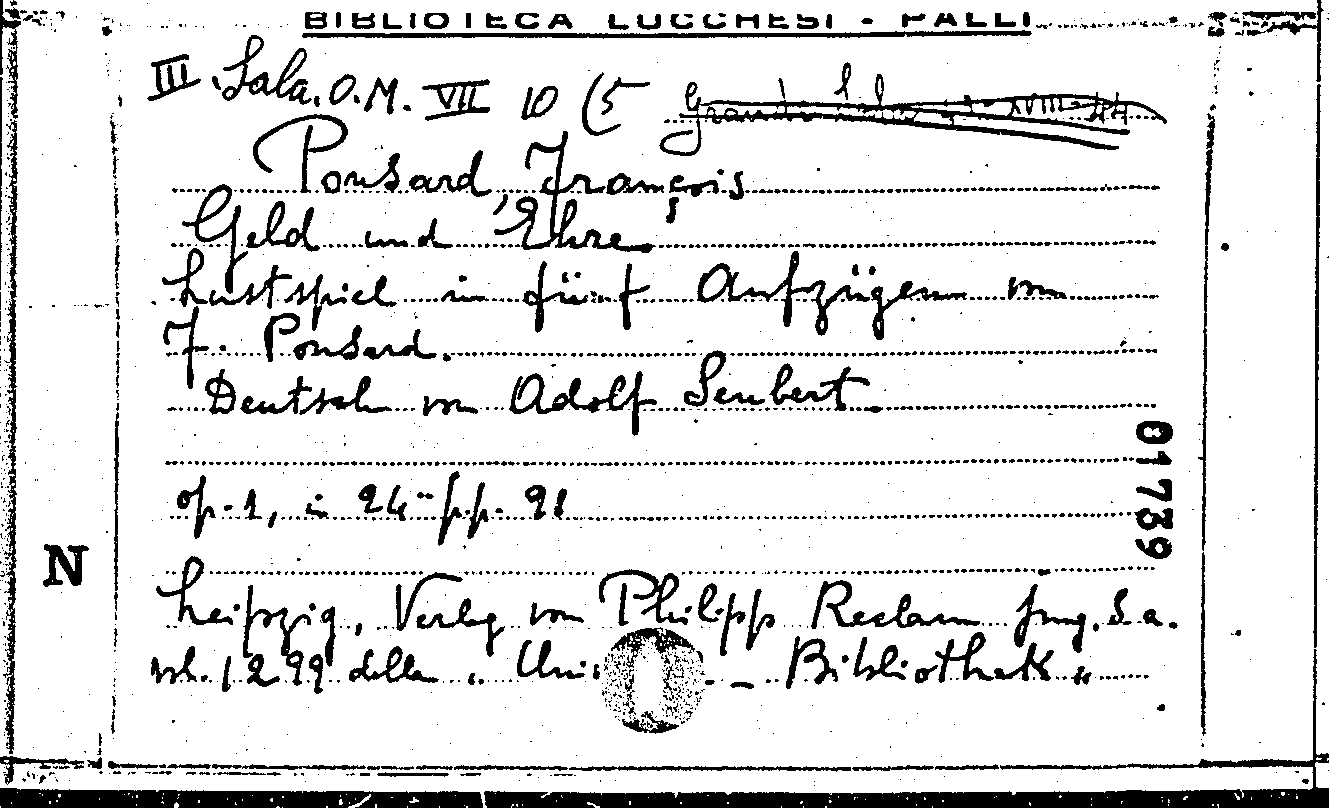 BIBLIOTECA LUCCHESI - PALLI
III. Sala. O.M. VII 10 (5
Ponsard, François
Geld und Ehre.
Lustspiel in fünf Aufzügen von
F. Ponsard.
Deutsch von Adolf Seubert.
01739
op. 1, in 24° pp. 91
N
Leipzig, Verlag von Philipp Reclam jung. s.a.
vol. 1299 della „ Uni - Bibliothek "